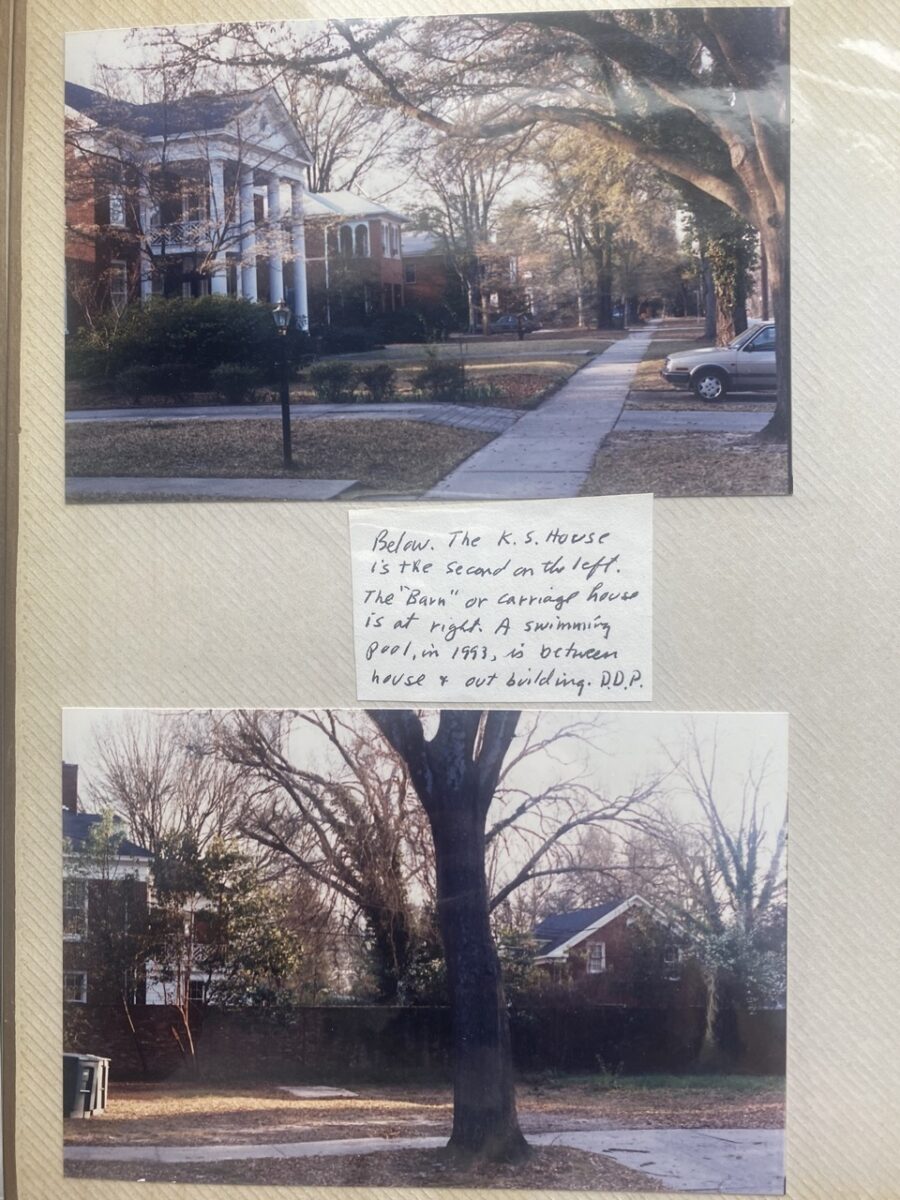 Below. The K.S. House
is the second on the left.
The "Barn" or carriage house
is at right. A swimming
pool, in 1993, is between
house & out building. D.D.P.